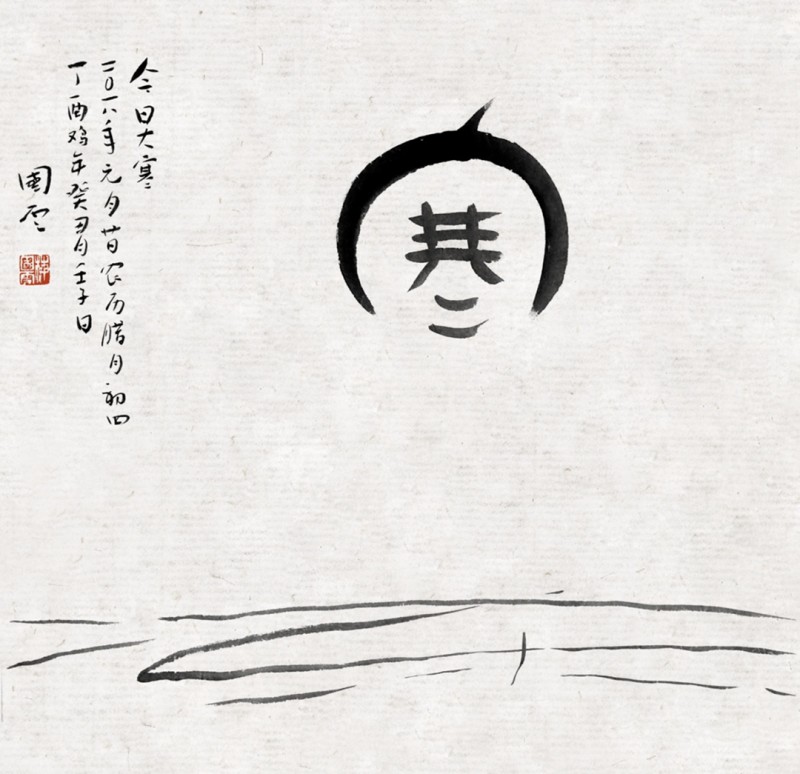 寒
今日大寒
二〇一八年元月廿日农历腊月初四
丁酉鸡年癸丑月壬子日
國云